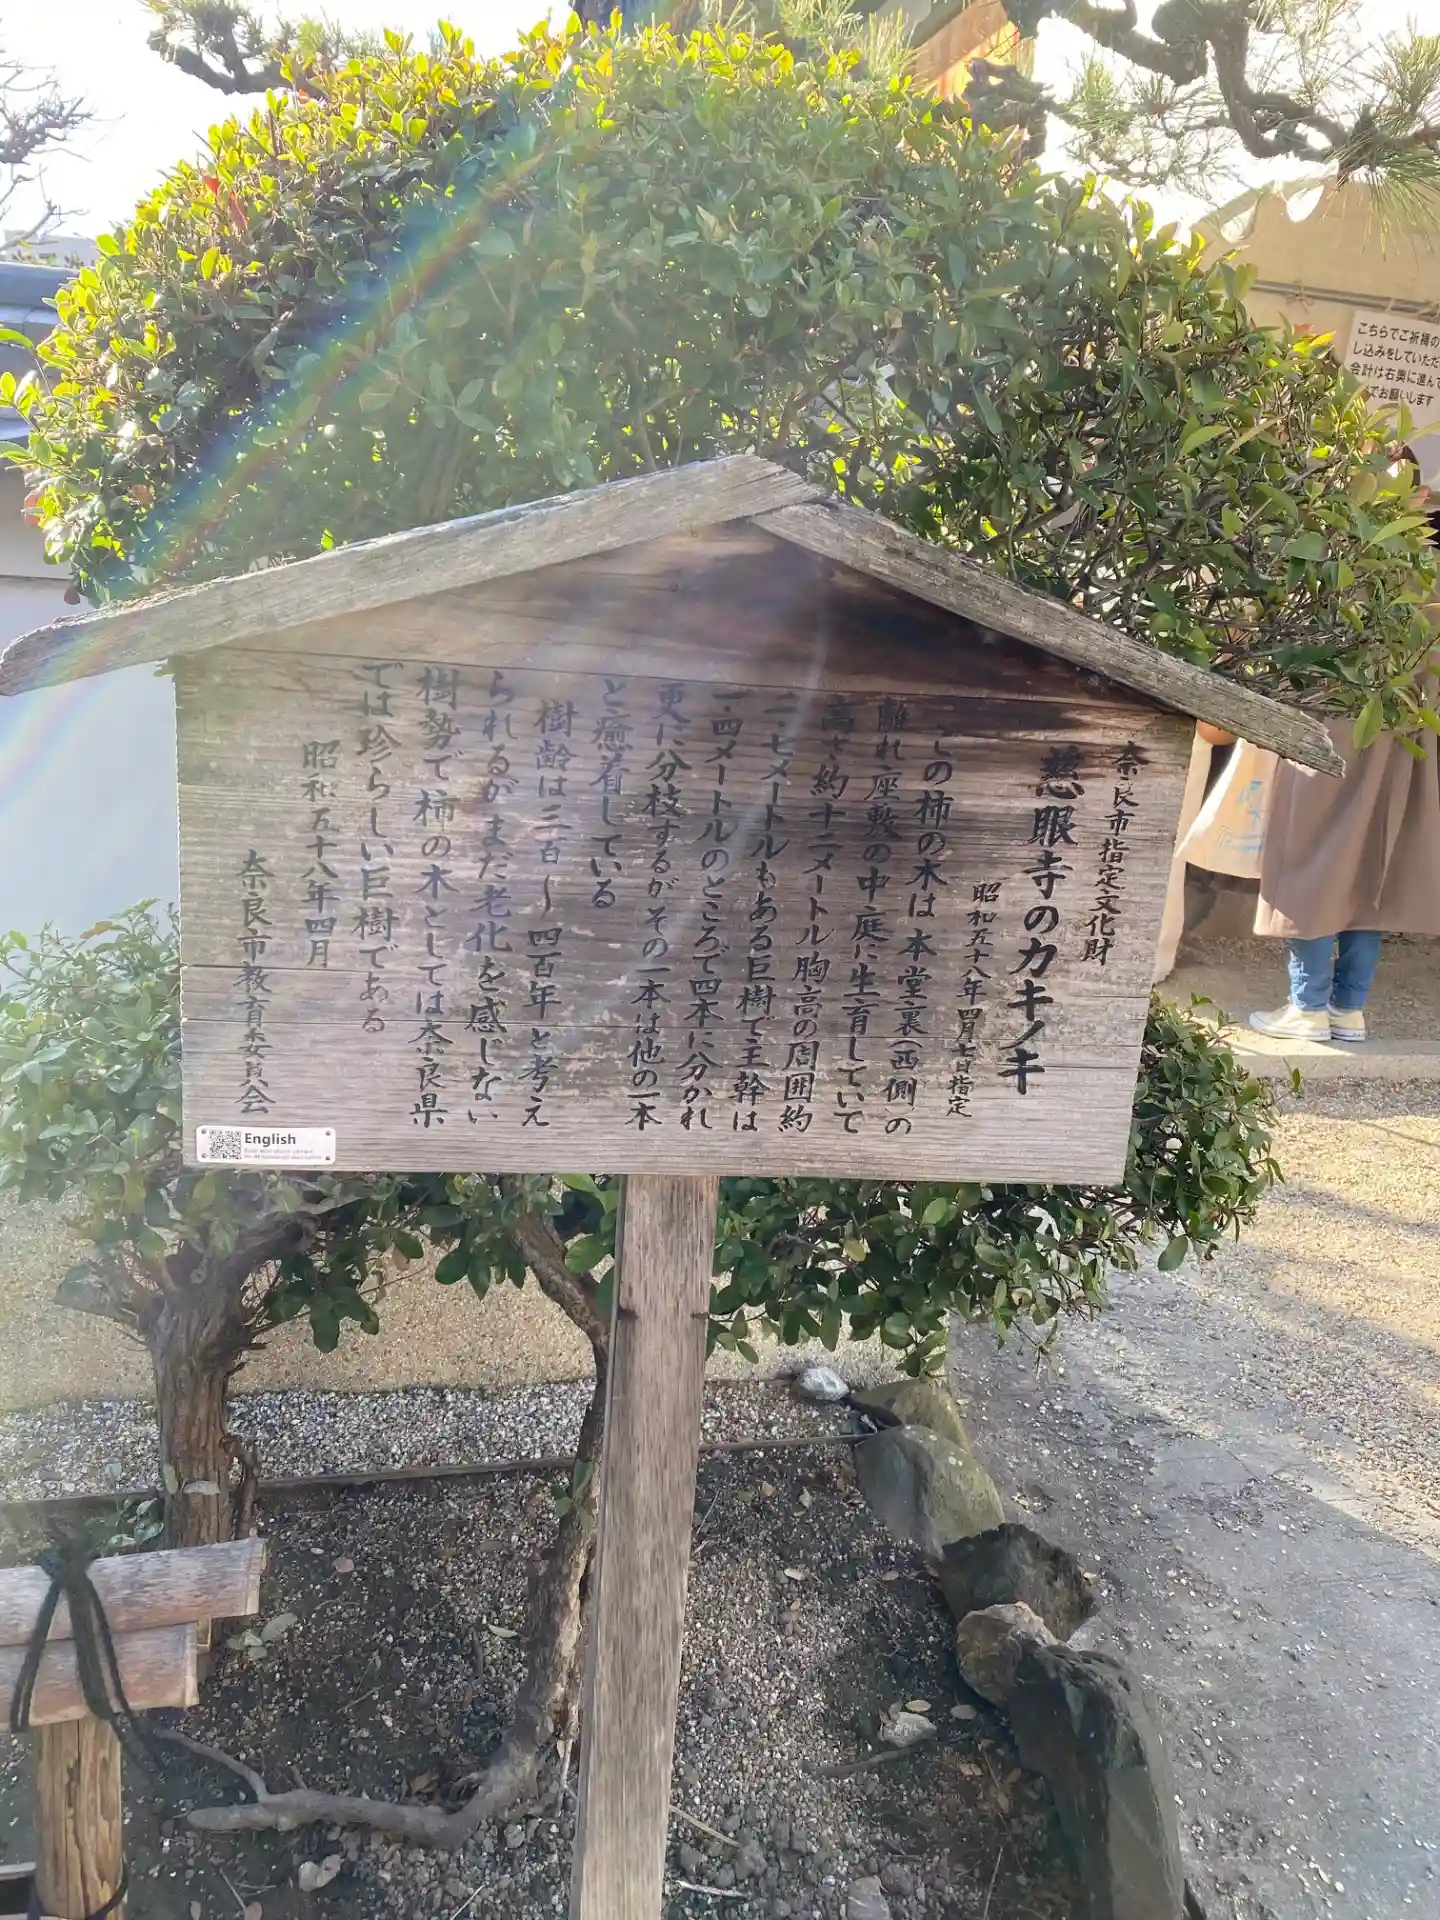 奈良市指定文化財
慈眼寺のカキノキ
昭和五十八年四月七日指定
この柿の木は本堂裏(西側)の
離れ座敷の中庭に生育していて
高さ約十二メートル胸高の周囲約
二・七メートルもある巨樹で主幹は
一・四メートルのところで四本に分かれ
更に分枝するがその一本は他の一本
と癒着している
樹齢は三百〜四百年と考え
られるがまだ老化を感じない
樹勢で柿の木としては奈良県
では珍らしい巨樹である
昭和五十八年四月
奈良市教育委員会
English
こちらでご祈祷の
し込みをしていただ
会計は右奥に進んで
でお願いします